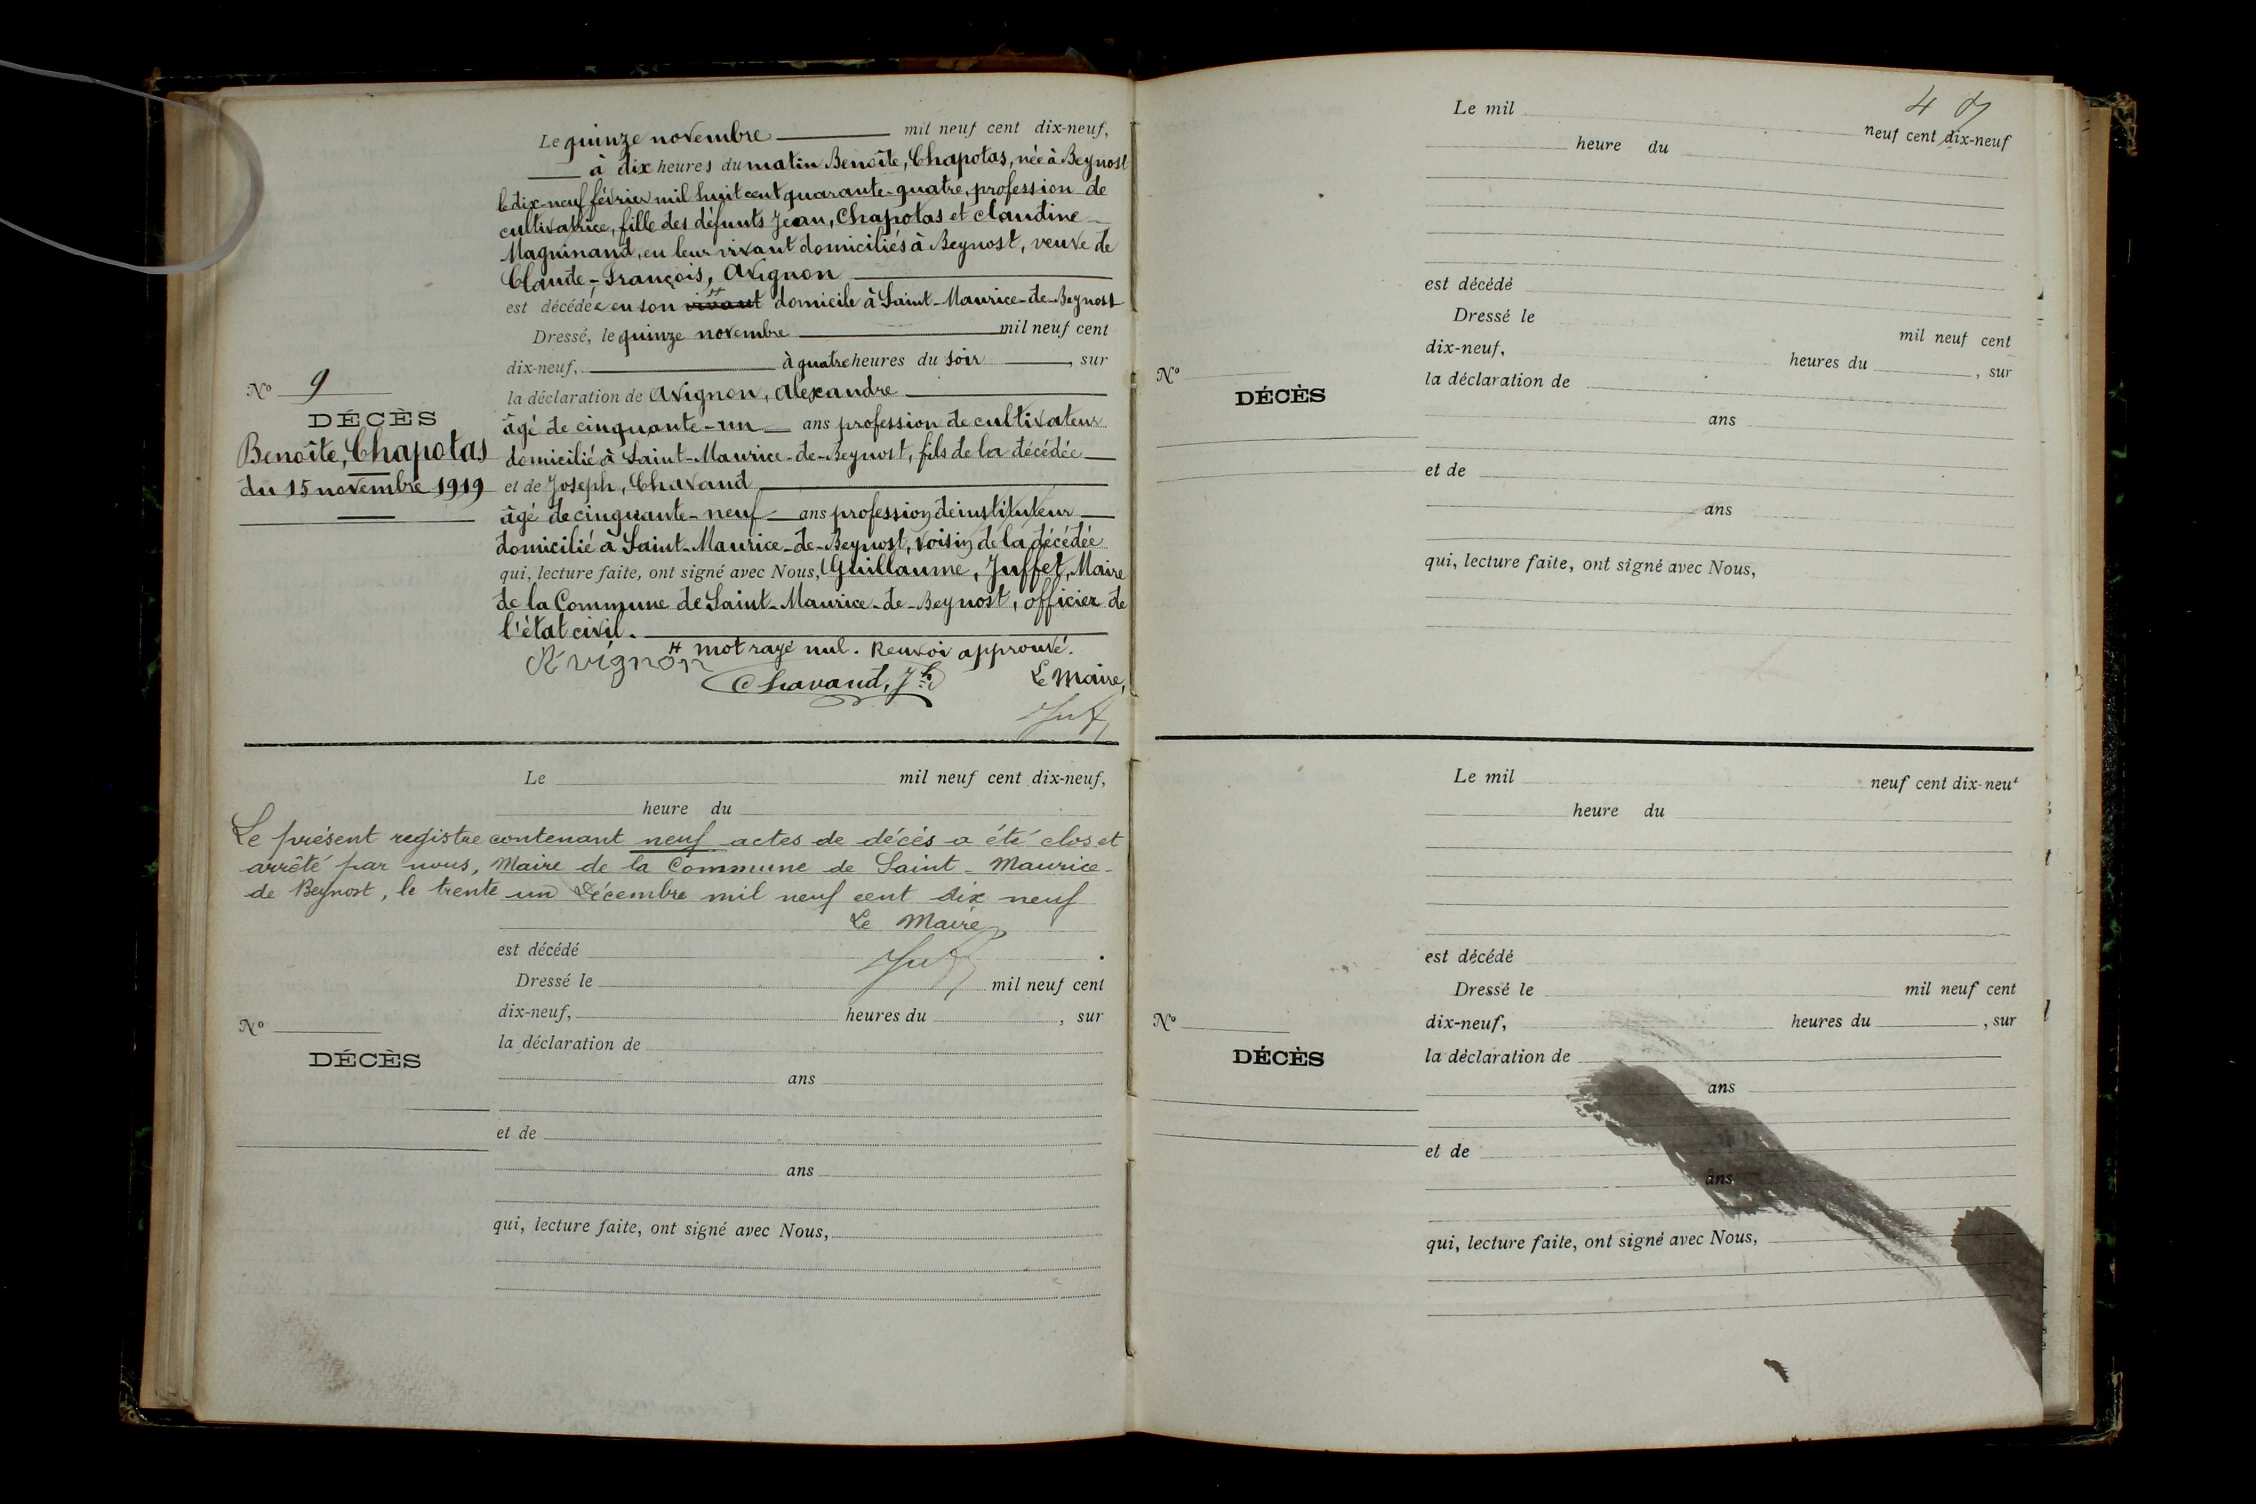 Le quinze novembre mil neuf cent dix-neuf,
à dix heures du matin Benoîte, Chapotas, née à Beynost
le dix-neuf février mil huit cent quarante-quatre, profession de
cultivatrice, fille des défunts Jean, Chapotas et Claudine
Maguinand, en leur vivant domiciliés à Beynost, veuve de
Claude-François, Avignon
est décédée en son vivant domicile à Saint-Maurice-de-Beynost
Dressé, le quinze novembre mil neuf cent
dix-neuf, à quatre heures du soir, sur
la déclaration de Avignon, Alexandre
âgé de cinquante-un ans profession de cultivateur
domicilié à Saint-Maurice-de-Beynost, fils de la décédée
et de Joseph, Chavand
âgé de cinquante-neuf ans profession de instituteur
domicilié à Saint-Maurice-de-Beynost, voisin de la décédée
qui, lecture faite, ont signé avec Nous, Guillaume, Juffet, Maire
de la Commune de Saint-Maurice-de-Beynost, officier de
l'état civil.
mot rayé nul. Renvoi approuvé.
Avignon
Chavand, Jh
Le Maire,
N° 9
DÉCÈS
Benoîte, Chapotas
du 15 novembre 1919
Le mil neuf cent dix-neuf,
heure du
Le présent registre contenant neuf actes de décés a été clos et
arrêté par nous, Maire de la Commune de Saint-Maurice-
de Beynost, le trente un Décembre mil neuf cent dix neuf
Le Maire
est décédé
Dressé le mil neuf cent
dix-neuf, heures du , sur
la déclaration de
ans
et de
ans
qui, lecture faite, ont signé avec Nous,
N°
DÉCÈS
4
Le mil neuf cent dix-neuf
heure du
est décédé
Dressé le mil neuf cent
dix-neuf, heures du , sur
la déclaration de
ans
et de
ans
qui, lecture faite, ont signé avec Nous,
N°
DÉCÈS
Le mil neuf cent dix-neuf
heure du
est décédé
Dressé le mil neuf cent
dix-neuf, heures du , sur
la déclaration de
ans
et de
ans
qui, lecture faite, ont signé avec Nous,
N°
DÉCÈS